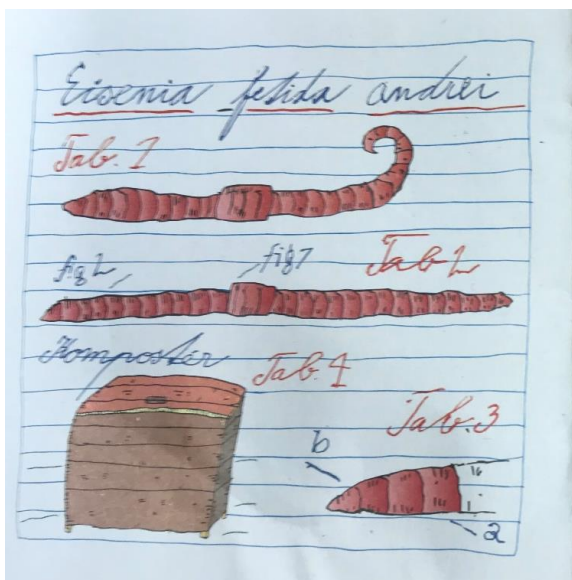 Eisenia fetida andrei
Tab. 1
fig 2 fig 1 Tab 2
Komposter
Tab. 4
Tab. 3
b
16
1
a